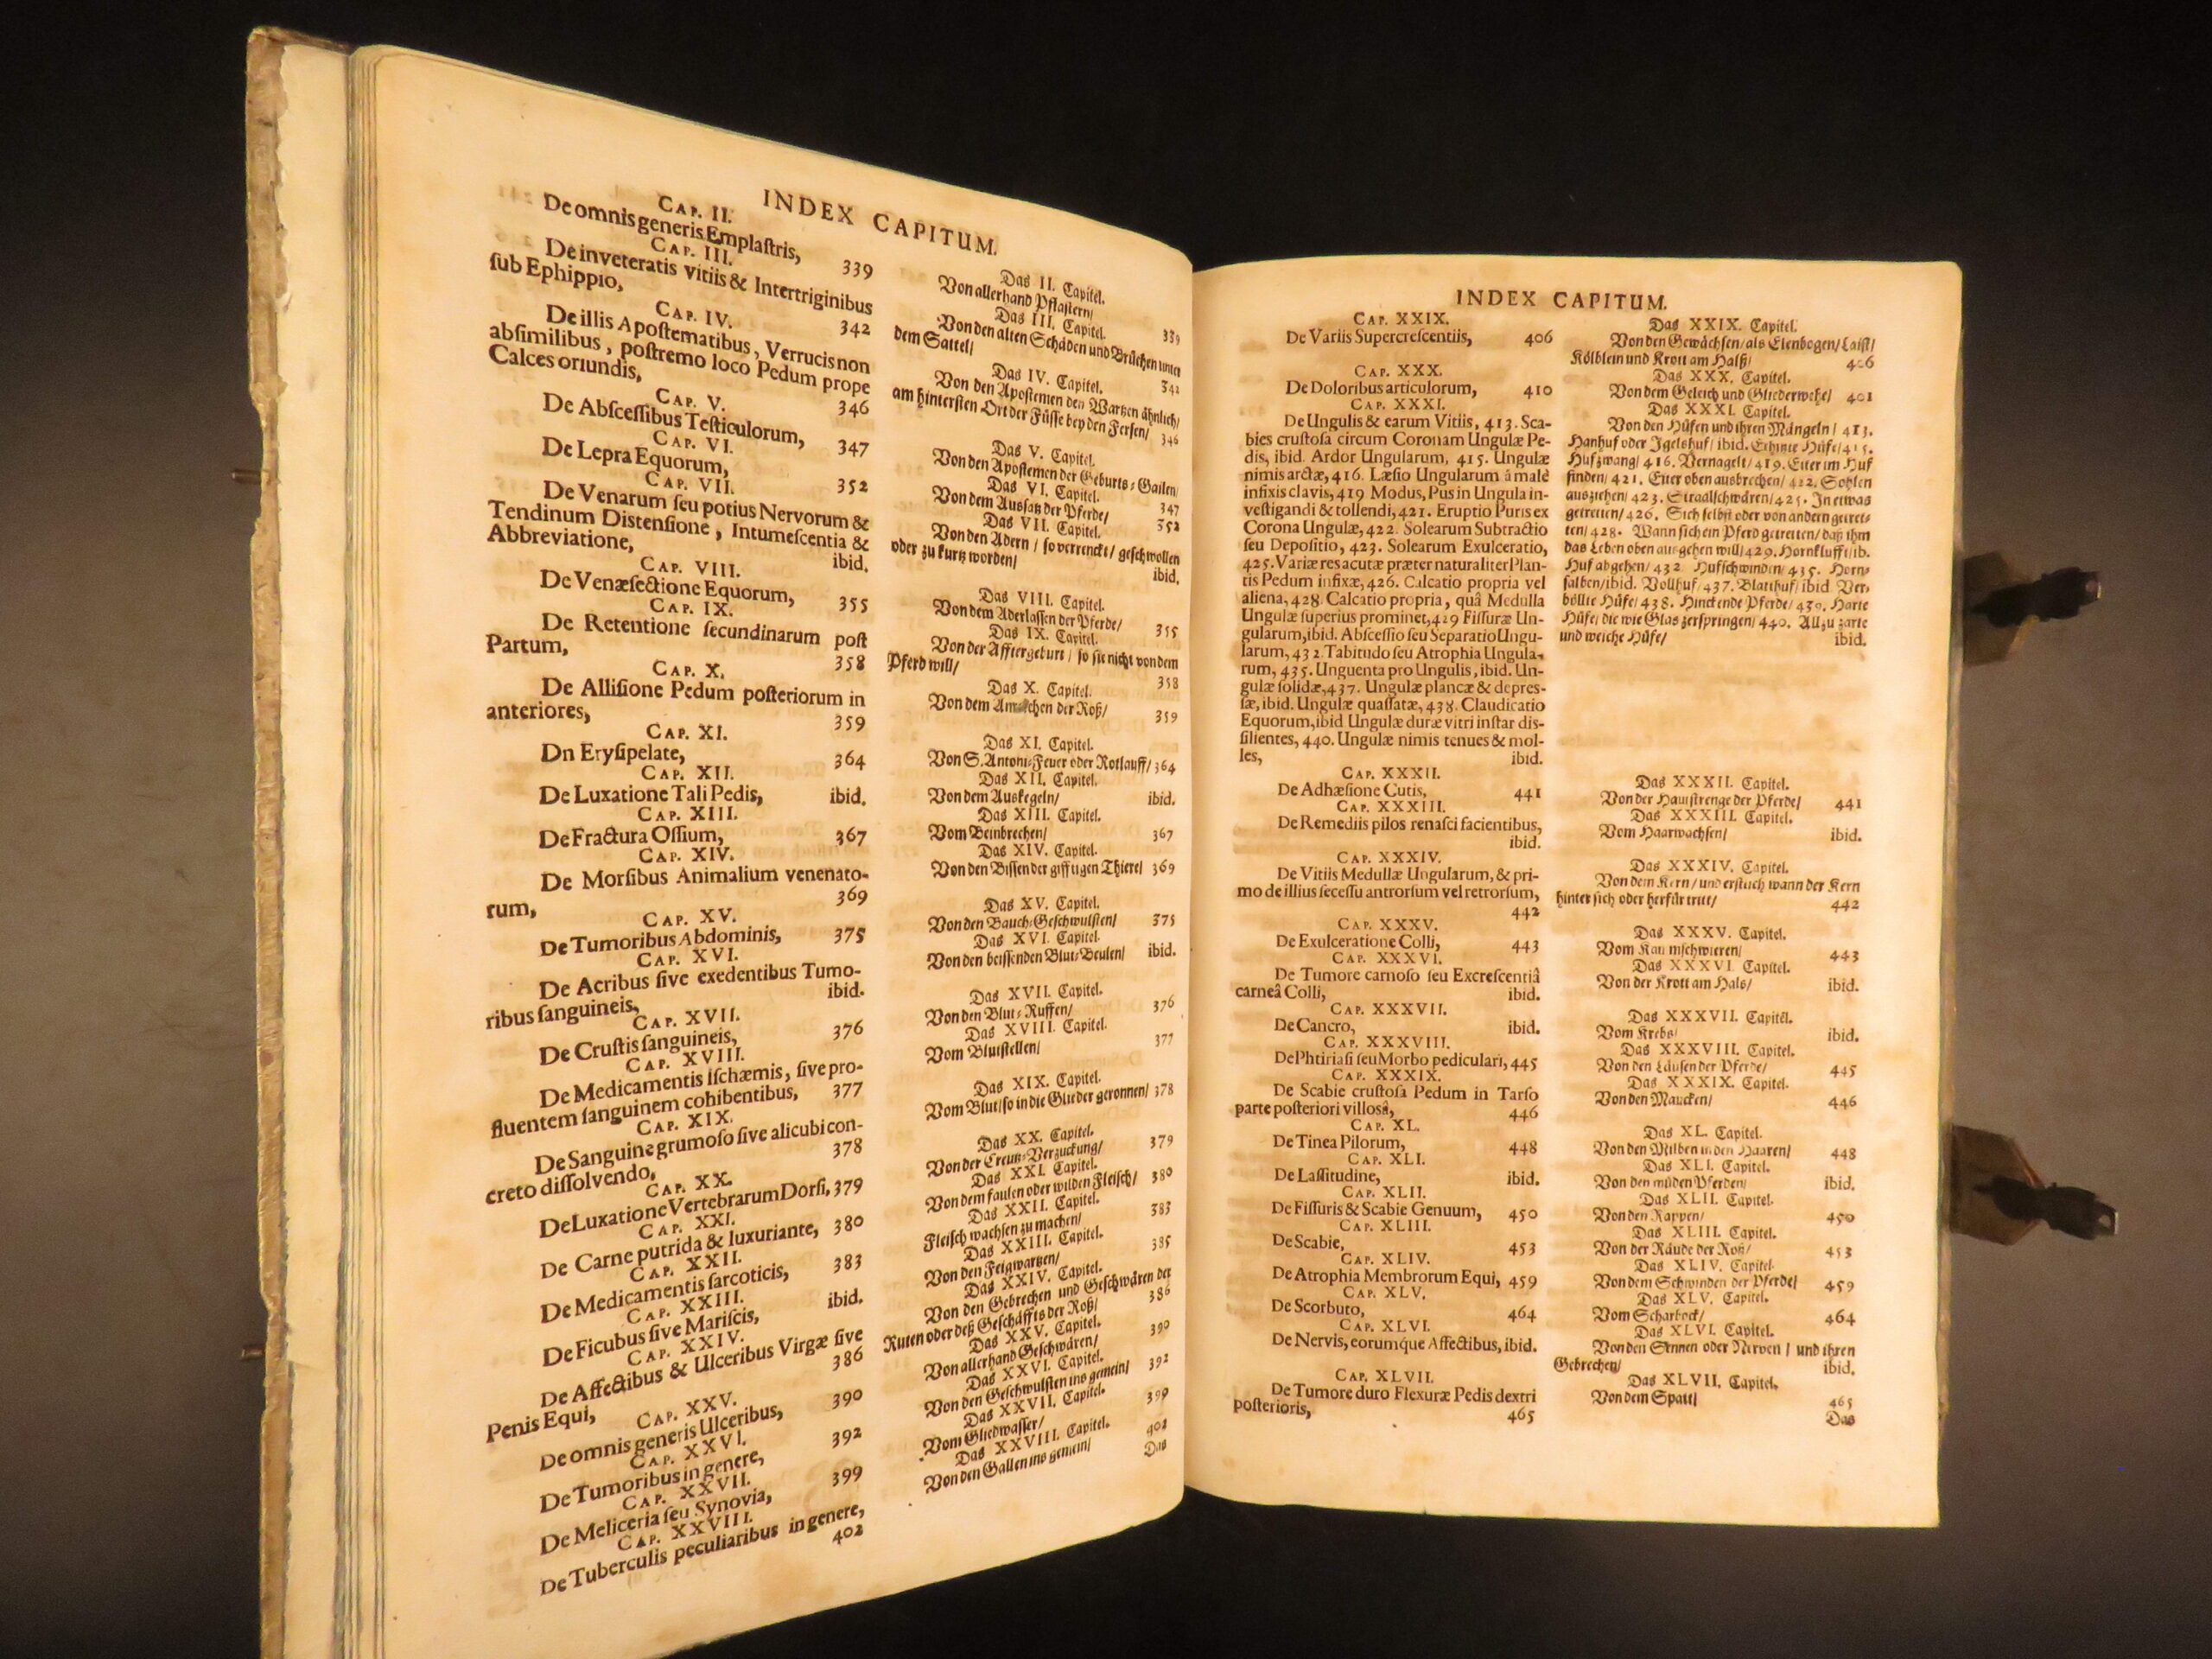 INDEX CAPITUM.
CAP. II.
De omnis generis Emplaſtris, 339
CAP. III.
De inveteratis vitiis & Intertriginibus
ſub Ephippio, 342
CAP. IV.
De illis Apoſtematibus, Verrucis non
abſimilibus, poſtremo loco Pedum prope
Calces oriundis, 346
CAP. V.
De Abſceſſibus Teſticulorum, 347
CAP. VI.
De Lepra Equorum, 352
CAP. VII.
De Venarum ſeu potius Nervorum &
Tendinum Diſtenſione, Intumeſcentia &
Abbreviatione, ibid.
CAP. VIII.
De Venæſectione Equorum, 355
CAP. IX.
De Retentione ſecundinarum poſt
Partum, 358
CAP. X.
De Alliſione Pedum poſteriorum in
anteriores, 359
CAP. XI.
Dn Eryſipelate, 364
CAP. XII.
De Luxatione Tali Pedis, ibid.
CAP. XIII.
De Fractura Oſſium, 367
CAP. XIV.
De Morſibus Animalium venenato-
rum, 369
CAP. XV.
De Tumoribus Abdominis, 375
CAP. XVI.
De Acribus ſive exedentibus Tumo-
ribus ſanguineis, ibid.
CAP. XVII.
De Cruſtis ſanguineis, 376
CAP. XVIII.
De Medicamentis Iſchæmis, ſive pro-
fluentem ſanguinem cohibentibus, 377
CAP. XIX.
De Sanguine grumoſo ſive alicubi con-
creto diſſolvendo, 378
CAP. XX.
De Luxatione Vertebrarum Dorſi, 379
CAP. XXI.
De Carne putrida & luxuriante, 380
CAP. XXII.
De Medicamentis ſarcoticis, 383
CAP. XXIII.
De Ficubus ſive Mariſcis, ibid.
CAP. XXIV.
De Affectibus & Ulceribus Virgæ ſive
Penis Equi, 386
CAP. XXV.
De omnis generis Ulceribus, 390
CAP. XXVI.
De Tumoribus in genere, 392
CAP. XXVII.
De Meliceria ſeu Synovia, 399
CAP. XXVIII.
De Tuberculis peculiaribus in genere,
402
Das II. Capitel.
Von allerhand Pflaſtern/ 339
Das III. Capitel.
Von den alten Schäden und Brüchen unter
dem Sattel/ 342
Das IV. Capitel.
Von den Apoſtemen den Wartzen ähnlich/
am hinterſten Ort der Füſſe bey den Ferſen/ 346
Das V. Capitel.
Von den Apoſtemen der Geburts-Gailen/
347
Das VI. Capitel.
Von dem Auſſatz der Pferde/ 352
Das VII. Capitel.
Von den Adern / ſo verrenckt/ geſchwollen
oder zu kurtz worden/ ibid.
Das VIII. Capitel.
Von dem Aderlaſſen der Pferde/ 355
Das IX. Capitel.
Von der Afftergeburt / ſo ſie nicht von dem
Pferd will/ 358
Das X. Capitel.
Von dem der Roß/ 359
Das XI. Capitel.
Von S. Antoni-Feuer oder Rotlauff/ 364
Das XII. Capitel.
Von dem Auskegeln/ ibid.
Das XIII. Capitel.
Vom Beinbrechen/ 367
Das XIV. Capitel.
Von den Biſſen der gifftigen Thiere/ 369
Das XV. Capitel.
Von den Bauch-Geſchwulſten/ 375
Das XVI. Capitel.
Von den beiſſenden Blut-Beulen/ ibid.
Das XVII. Capitel.
Von den Blut-Ruffen/ 376
Das XVIII. Capitel.
Vom Blutſtellen/ 377
Das XIX. Capitel.
Vom Blut/ ſo in die Glieder geronnen/ 378
Das XX. Capitel.
Von der Creutz-Verzuckung/ 379
Das XXI. Capitel.
Von dem faulen oder wilden Fleiſch/ 380
Das XXII. Capitel.
Fleiſch wachſen zu machen/ 383
Das XXIII. Capitel.
Von den Feigwartzen/ 385
Das XXIV. Capitel.
Von den Gebrechen und Geſchwären der
Ruten oder deß Geſchäffts der Roß/ 386
Das XXV. Capitel.
Von allerhand Geſchwären/ 390
Das XXVI. Capitel.
Von den Geſchwulſten ins gemein/ 392
Das XXVII. Capitel.
Vom Gliedwaſſer/ 399
Das XXVIII. Capitel.
Von den Gallen ins gemein/ 402
Das
INDEX CAPITUM.
CAP. XXIX.
De Variis Supercreſcentiis, 406
CAP. XXX.
De Doloribus articulorum, 410
CAP. XXXI.
De Ungulis & earum Vitiis, 413. Sca-
bies cruſtoſa circum Coronam Ungulæ Pe-
dis, ibid. Ardor Ungularum, 415. Ungulæ
nimis arctæ, 416. Læſio Ungularum à malè
infixis clavis, 419 Modus, Pus in Ungula in-
veſtigandi & tollendi, 421. Eruptio Puris ex
Corona Ungulæ, 422. Solearum Subtractio
ſeu Depoſitio, 423. Solearum Exulceratio,
425. Variæ res acutæ præter naturaliter Plan-
tis Pedum infixæ, 426. Calcatio propria vel
aliena, 428. Calcatio propria, quâ Medulla
Ungulæ ſuperius prominet, 429 Fiſſuræ Un-
gularum, ibid. Abſceſſio ſeu Separatio Ungu-
larum, 432. Tabitudo ſeu Atrophia Ungula-
rum, 435. Unguenta pro Ungulis, ibid. Un-
gulæ ſolidæ, 437. Ungulæ plancæ & depreſ-
ſæ, ibid. Ungulæ quaſſatæ, 438. Claudicatio
Equorum, ibid Ungulæ duræ vitri inſtar dis-
ſilientes, 440. Ungulæ nimis tenues & mol-
les, ibid.
CAP. XXXII.
De Adhæſione Cutis, 441
CAP. XXXIII.
De Remediis pilos renaſci facientibus,
ibid.
CAP. XXXIV.
De Vitiis Medullæ Ungularum, & pri-
mo de illius ſeceſſu antrorſum vel retrorſum,
442
CAP. XXXV.
De Exulceratione Colli, 443
CAP. XXXVI.
De Tumore carnoſo ſeu Excreſcentiâ
carneâ Colli, ibid.
CAP. XXXVII.
De Cancro, ibid.
CAP. XXXVIII.
De Phtiriaſi ſeu Morbo pediculari, 445
CAP. XXXIX.
De Scabie cruſtoſa Pedum in Tarſo
parte poſteriori villosâ, 446
CAP. XL.
De Tinea Pilorum, 448
CAP. XLI.
De Laſſitudine, ibid.
CAP. XLII.
De Fiſſuris & Scabie Genuum, 450
CAP. XLIII.
De Scabie, 453
CAP. XLIV.
De Atrophia Membrorum Equi, 459
CAP. XLV.
De Scorbuto, 464
CAP. XLVI.
De Nervis, eorumque Affectibus, ibid.
CAP. XLVII.
De Tumore duro Flexuræ Pedis dextri
poſterioris, 465
Das XXIX. Capitel.
Von den Gewächſen/ als Elenbogen/ Laiſt/
Kölblein und Krott am Halß/ 406
Das XXX. Capitel.
Von dem Geleich und Gliederwehe/ 401
Das XXXI. Capitel.
Von den Hüfen und ihren Mängeln/ 413.
Hanhuf oder Igelshuf/ ibid. Erhitzte Hüfe/ 415.
Hufzwang/ 416. Vernagelt/ 419. Eiter im Huf
finden/ 421. Eiter oben ausbrechen/ 422. Sohlen
ausziehen/ 423. Straalſchwären/ 425. In etwas
getretten/ 426. Sich ſelbſt oder von andern getret-
ten/ 428. Wann ſich ein Pferd getretten/ daß ihm
das Leben oben ausgehen will/ 429. Hornklufft/ ib.
Huf abgehen/ 432 Hufſchwinden/ 435. Horn-
ſalben/ ibid. Vollhuf/ 437. Blatthuf/ ibid Ver-
böllte Hüfe/ 438. Hinckende Pferde/ 439. Harte
Hüfe/ die wie Glas zerſpringen/ 440. Allzu zarte
und weiche Hüfe/ ibid.
Das XXXII. Capitel.
Von der Hautſtrenge der Pferde/ 441
Das XXXIII. Capitel.
Vom Haarwachſen/ ibid.
Das XXXIV. Capitel.
Von dem Kern / und erſtlich wann der Kern
hinter ſich oder herfür tritt/ 442
Das XXXV. Capitel.
Vom Kammſchwieren/ 443
Das XXXVI. Capitel.
Von der Krott am Hals/ ibid.
Das XXXVII. Capitel.
Vom Krebs/ ibid.
Das XXXVIII. Capitel.
Von den Läuſen der Pferde/ 445
Das XXXIX. Capitel.
Von den Maucken/ 446
Das XL. Capitel.
Von den Milben in den Haaren/ 448
Das XLI. Capitel.
Von den müden Pferden/ ibid.
Das XLII. Capitel.
Von den Rappen/ 450
Das XLIII. Capitel.
Von der Räude der Roß/ 453
Das XLIV. Capitel.
Von dem Schwinden der Pferde/ 459
Das XLV. Capitel.
Vom Scharbock/ 464
Das XLVI. Capitel.
Von den Sennen oder Nerven / und ihren
Gebrechen/ ibid.
Das XLVII. Capitel.
Von dem Spatt/ 465
Das